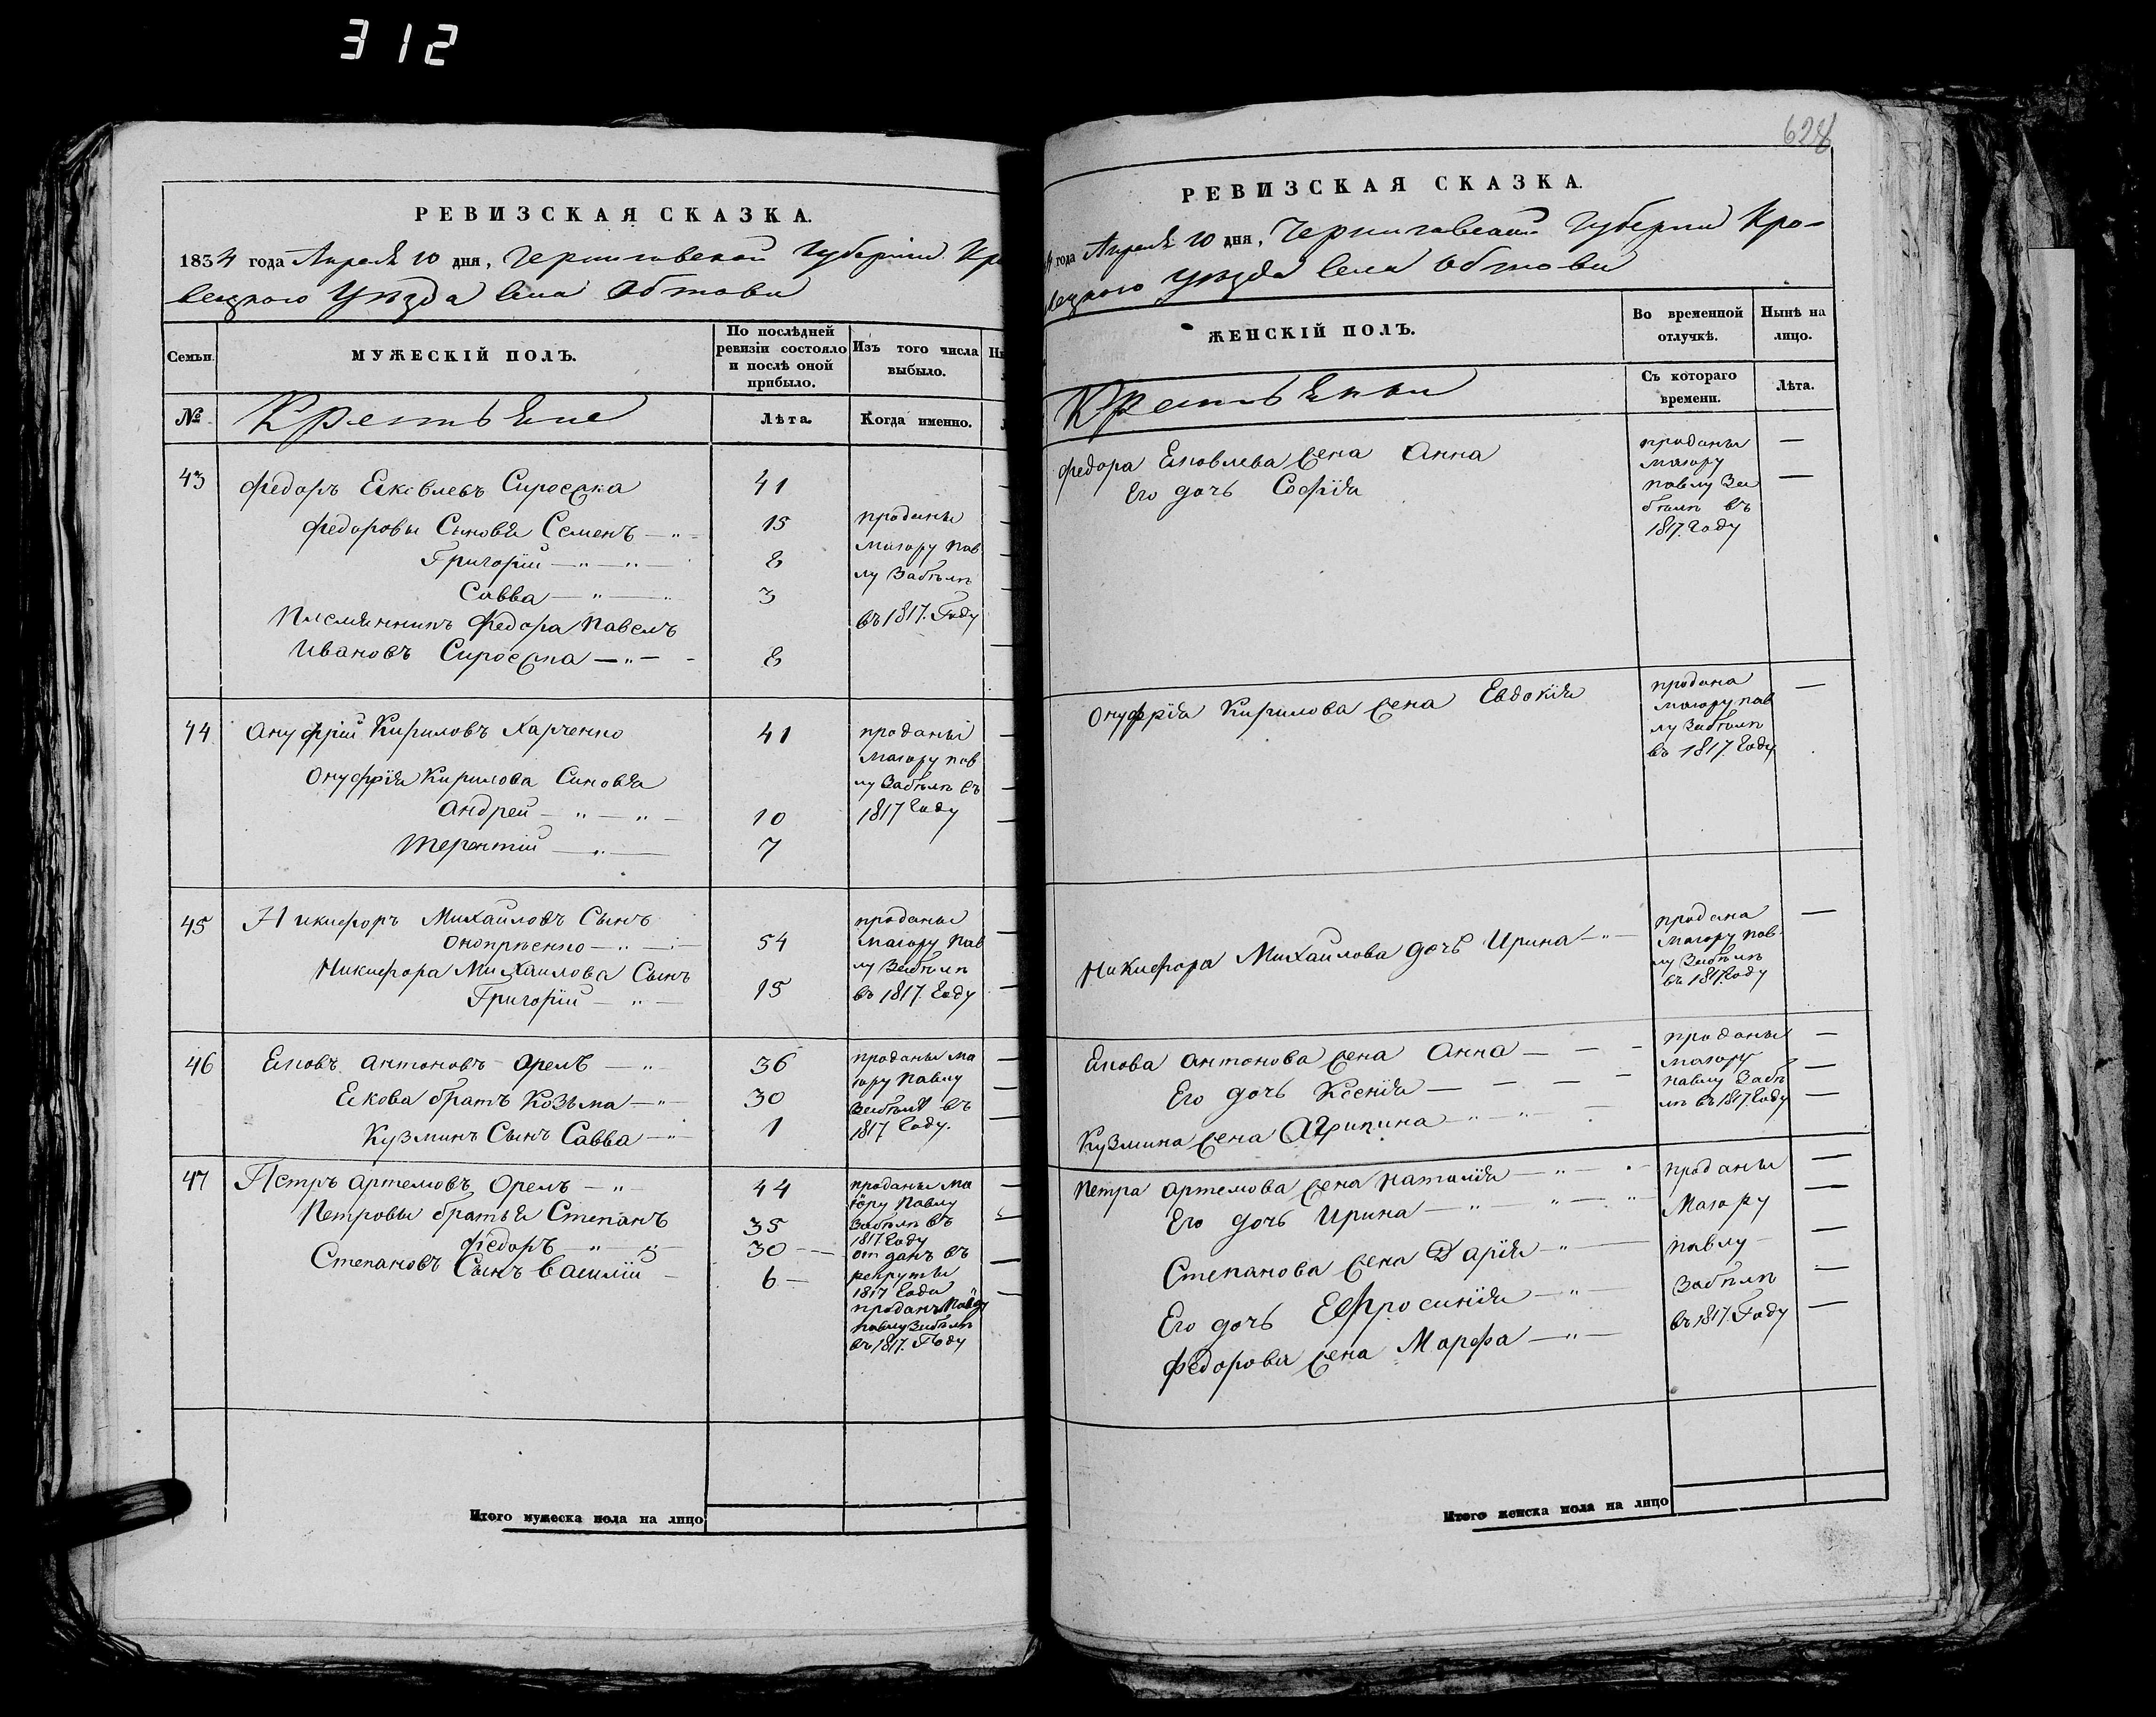 312
РЕВИЗСКАЯ СКАЗКА.
1834 года Апреля 10 дня, Черниговской Губернии Кро
вецкого Уезда села Обтова
Семьи.
МУЖЕСКІЙ ПОЛЪ.
По послѣдней ревизіи состояло и послѣ оной прибыло.
Изъ того числа выбыло.
№
Крестьяне
Лѣта.
Когда именно.
43
Федоръ Яковлевъ
41
Федоровы Сыновья Семенъ
15
проданы
Григорій
8
Маіору Пав
лу Забѣлѣ
Савва
3
въ 1817. Году
Племянникъ Федора Павелъ
Ивановъ
8
44
Онуфрій Кириловъ Харченко
41
проданы
Маіору Пав
Онуфрія Кирилова Синовья
лу Забѣлѣ въ
Андрей
10
1817 Году
Терентій
7
45
Никифоръ Михайловъ Сынъ
проданы
Онопрѣенко
54
Маіору Пав
Никифора Михайлова Сынъ
лу Забѣлѣ
Григорій
15
въ 1817. Году
46
Яковъ Антоновъ Орелъ
36
проданы Ма
іору Павлу
Якова братъ Козьма
30
Забѣлѣ въ
Кузминъ Сынъ Савва
1
1817 Году.
47
Петръ Артемовъ Орелъ
44
проданы Ма
іору Павлу
Петровы братья Степанъ
35
Забѣлѣ въ
1817 Году
Федоръ
30
отданъ въ
Степановъ Сынъ Василій
6
рекруты
1817 Года
проданъ
Павлу Забѣлѣ
въ 1817. Году
Итого мужеска пола на лицо
628
РЕВИЗСКАЯ СКАЗКА.
4 года Апреля 10 дня, Черниговской Губернии Кро-
вецкого Уезда села Обтова
ЖЕНСКІЙ ПОЛЪ.
Во временной отлучкѣ.
Нынѣ на лицо.
Крестьянки
Съ котораго времени.
Лѣта.
Федора Яковлева жена Анна
проданы
Маіору
Его дочь Софія
Павлу За
бѣлѣ въ
1817. Году
Онуфрія Кирилова жена Евдокія
продана
Маіору Пав
лу Забѣлѣ
въ 1817. Году
Никифора Михайлова дочь Ирина
продана
Маіору Пав
лу Забѣлѣ
въ 1817. Году
Якова Антонова жена Анна
проданы
Маіору
Его дочь Ксенія
Павлу Забѣ
лѣ въ 1817. Году
Кузмина жена Агрипина
Петра Артемова жена Наталія
проданы
Его дочь Ирина
Маіору
Степанова жена Дарія
Павлу
Его дочь Ефросинія
Забѣлѣ
Федорова жена Марфа
въ 1817. Году
Итого женска пола на лицо